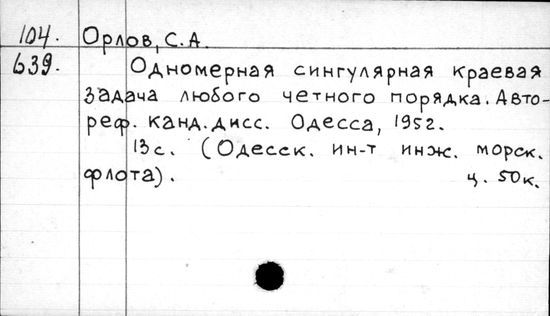 104. Орлов, С.А.
639. Одномерная сингулярная краевая
задача любого четного порядка. Авто-
реф. канд. дисс. Одесса, 1952.
13с. (Одесск. ин-т инж. морск.
флота). ц. 50к.